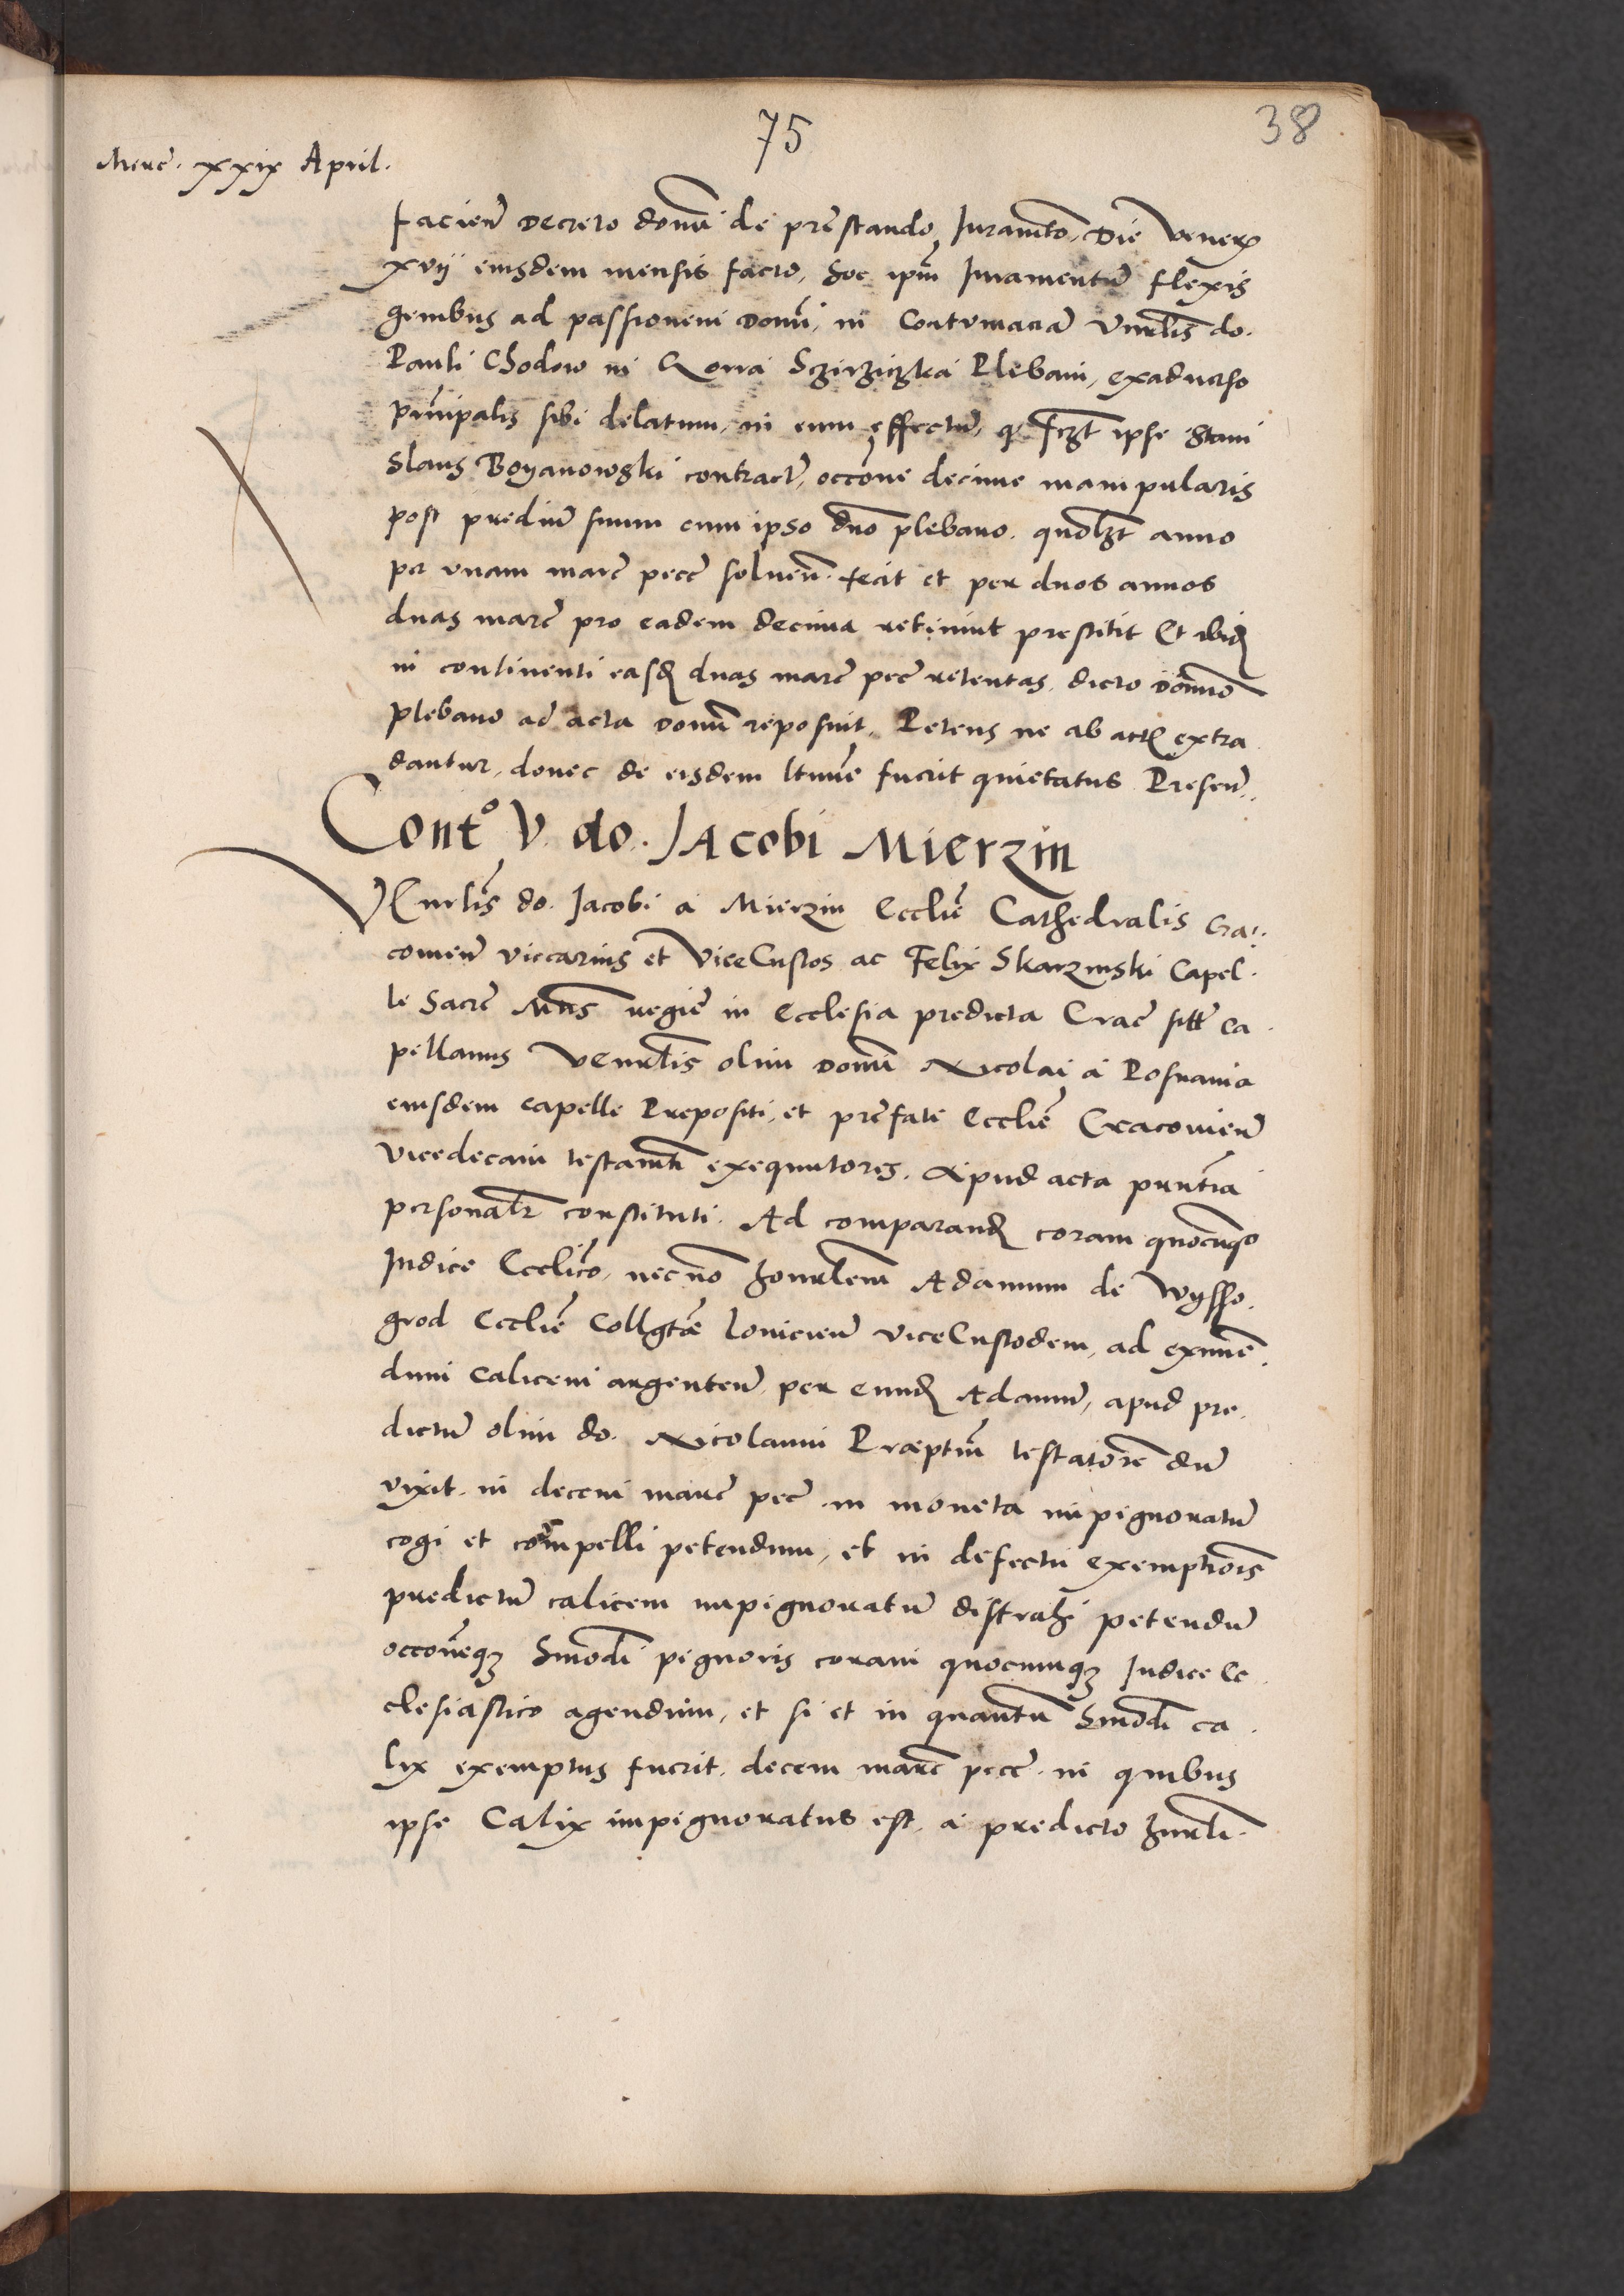 75
38
Merc. xxix April.
facien decreto domini de prestando Juramto, Die Vener
xvij eiusdem mensis facto, hoc ipm Juramentu flexis
genibus ad passionem Domi, in Contumacia Vnrlis do.
Pauli Chodow in Plebani, exaduerso
principalis sibi delatum, in eum effectu, q ipse Stani
slaus Boyanowski contractu, occone decime manipularis
post prediu suum cum ipso dno plebano quolzt anno
per vnam marc pecc soluen. fecit et per duos annos
duas marc pro eadem decima retinuit prestitit Et ibid
in continenti easd duas marc pec retentas, dicto domino
plebano ad acta domi reposuit, Petens ne ab actis extra
dantur, donec de eisdem ltime fuerit quietatus Presen..
Conto V. do. Jacobi Mierzin
VEnrlis do. Jacobi a Mierzin Ecclie Cathedralis Cra..
couien viccarius et ViceCustos ac Felix Skarzinski Capel.
le Sacre Mtis regie in Ecclesia predicta Crac site ca.
pellanus Venrlis olim domi Nicolai a Posnania
eiusdem capelle Prepositi, et prefate Ecclie Cracouien
Vicedecani testamti exequutores. Apud acta pnntia
personalr constituti. Ad comparand coram quocunqs
Judice Ecclico, necno honrlem Adamum de Wysso.
grod Ecclie Collgte Louicien ViceCustodem, ad eximen.
dum calicem argenteu, per eund Adamu, apud pre.
dictu olim do. Nicolaum Praeptm testatore du
vixit in decem marc pec in moneta impignoratu
cogi et compelli petendum, et in defectu exemptiois
predictu calicem impignoratu distrahi petendu
occoneqz Smodi pignoris coram quocumqz Judice Ec
clesiastico agendum, et si et in quantu Smodi ca.
lix exemptus fuerit, decem marc pecc in quibus
ipse Calix impignoratus est, a predicto hnrli.